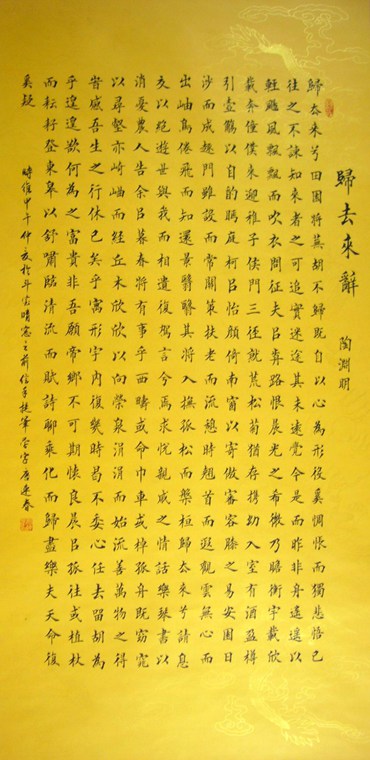 歸去來辭
陶淵明
歸去來兮田園將蕪胡不歸既自以心為形役奚惆悵而獨悲悟已
往之不諫知來者之可追實迷途其未遠覺今是而昨非舟遙遙以
輕颺風飄飄而吹衣問征夫㠯前路恨晨光之希微乃瞻衡宇載欣
載奔僮僕來迎稚子侯門三徑就荒松菊猶存携幼入室有酒盈樽
引壺觴以自酌眄庭柯㠯怡顏倚南窗以寄傲審容膝之易安園日
涉而成趣門雖設而常關策扶老而流憩時翹首而遐觀雲無心而
出岫鳥倦飛而知還景翳翳其將入撫孤松而槃桓歸去來兮請息
交以絕遊世與我而相遺復駕言兮焉求悅親戚之情話樂琴書以
消憂農人告余㠯暮春將有事乎西疇或命巾車或棹孤舟既窈窕
以尋壑亦崎嶇而經丘木欣欣以向榮泉涓涓而始流善萬物之得
時感吾生之行休已矣乎寓形宇內復幾時曷不委心任去留胡為
乎遑遑欲何為之富貴非吾願帝鄉不可期懷良辰㠯孤往或植杖
而耘耔登東皋以舒嘯臨清流而賦詩聊乘化而歸盡樂夫天命復
奚疑
時維甲午仲於斗室晴窗之前信手捉筆